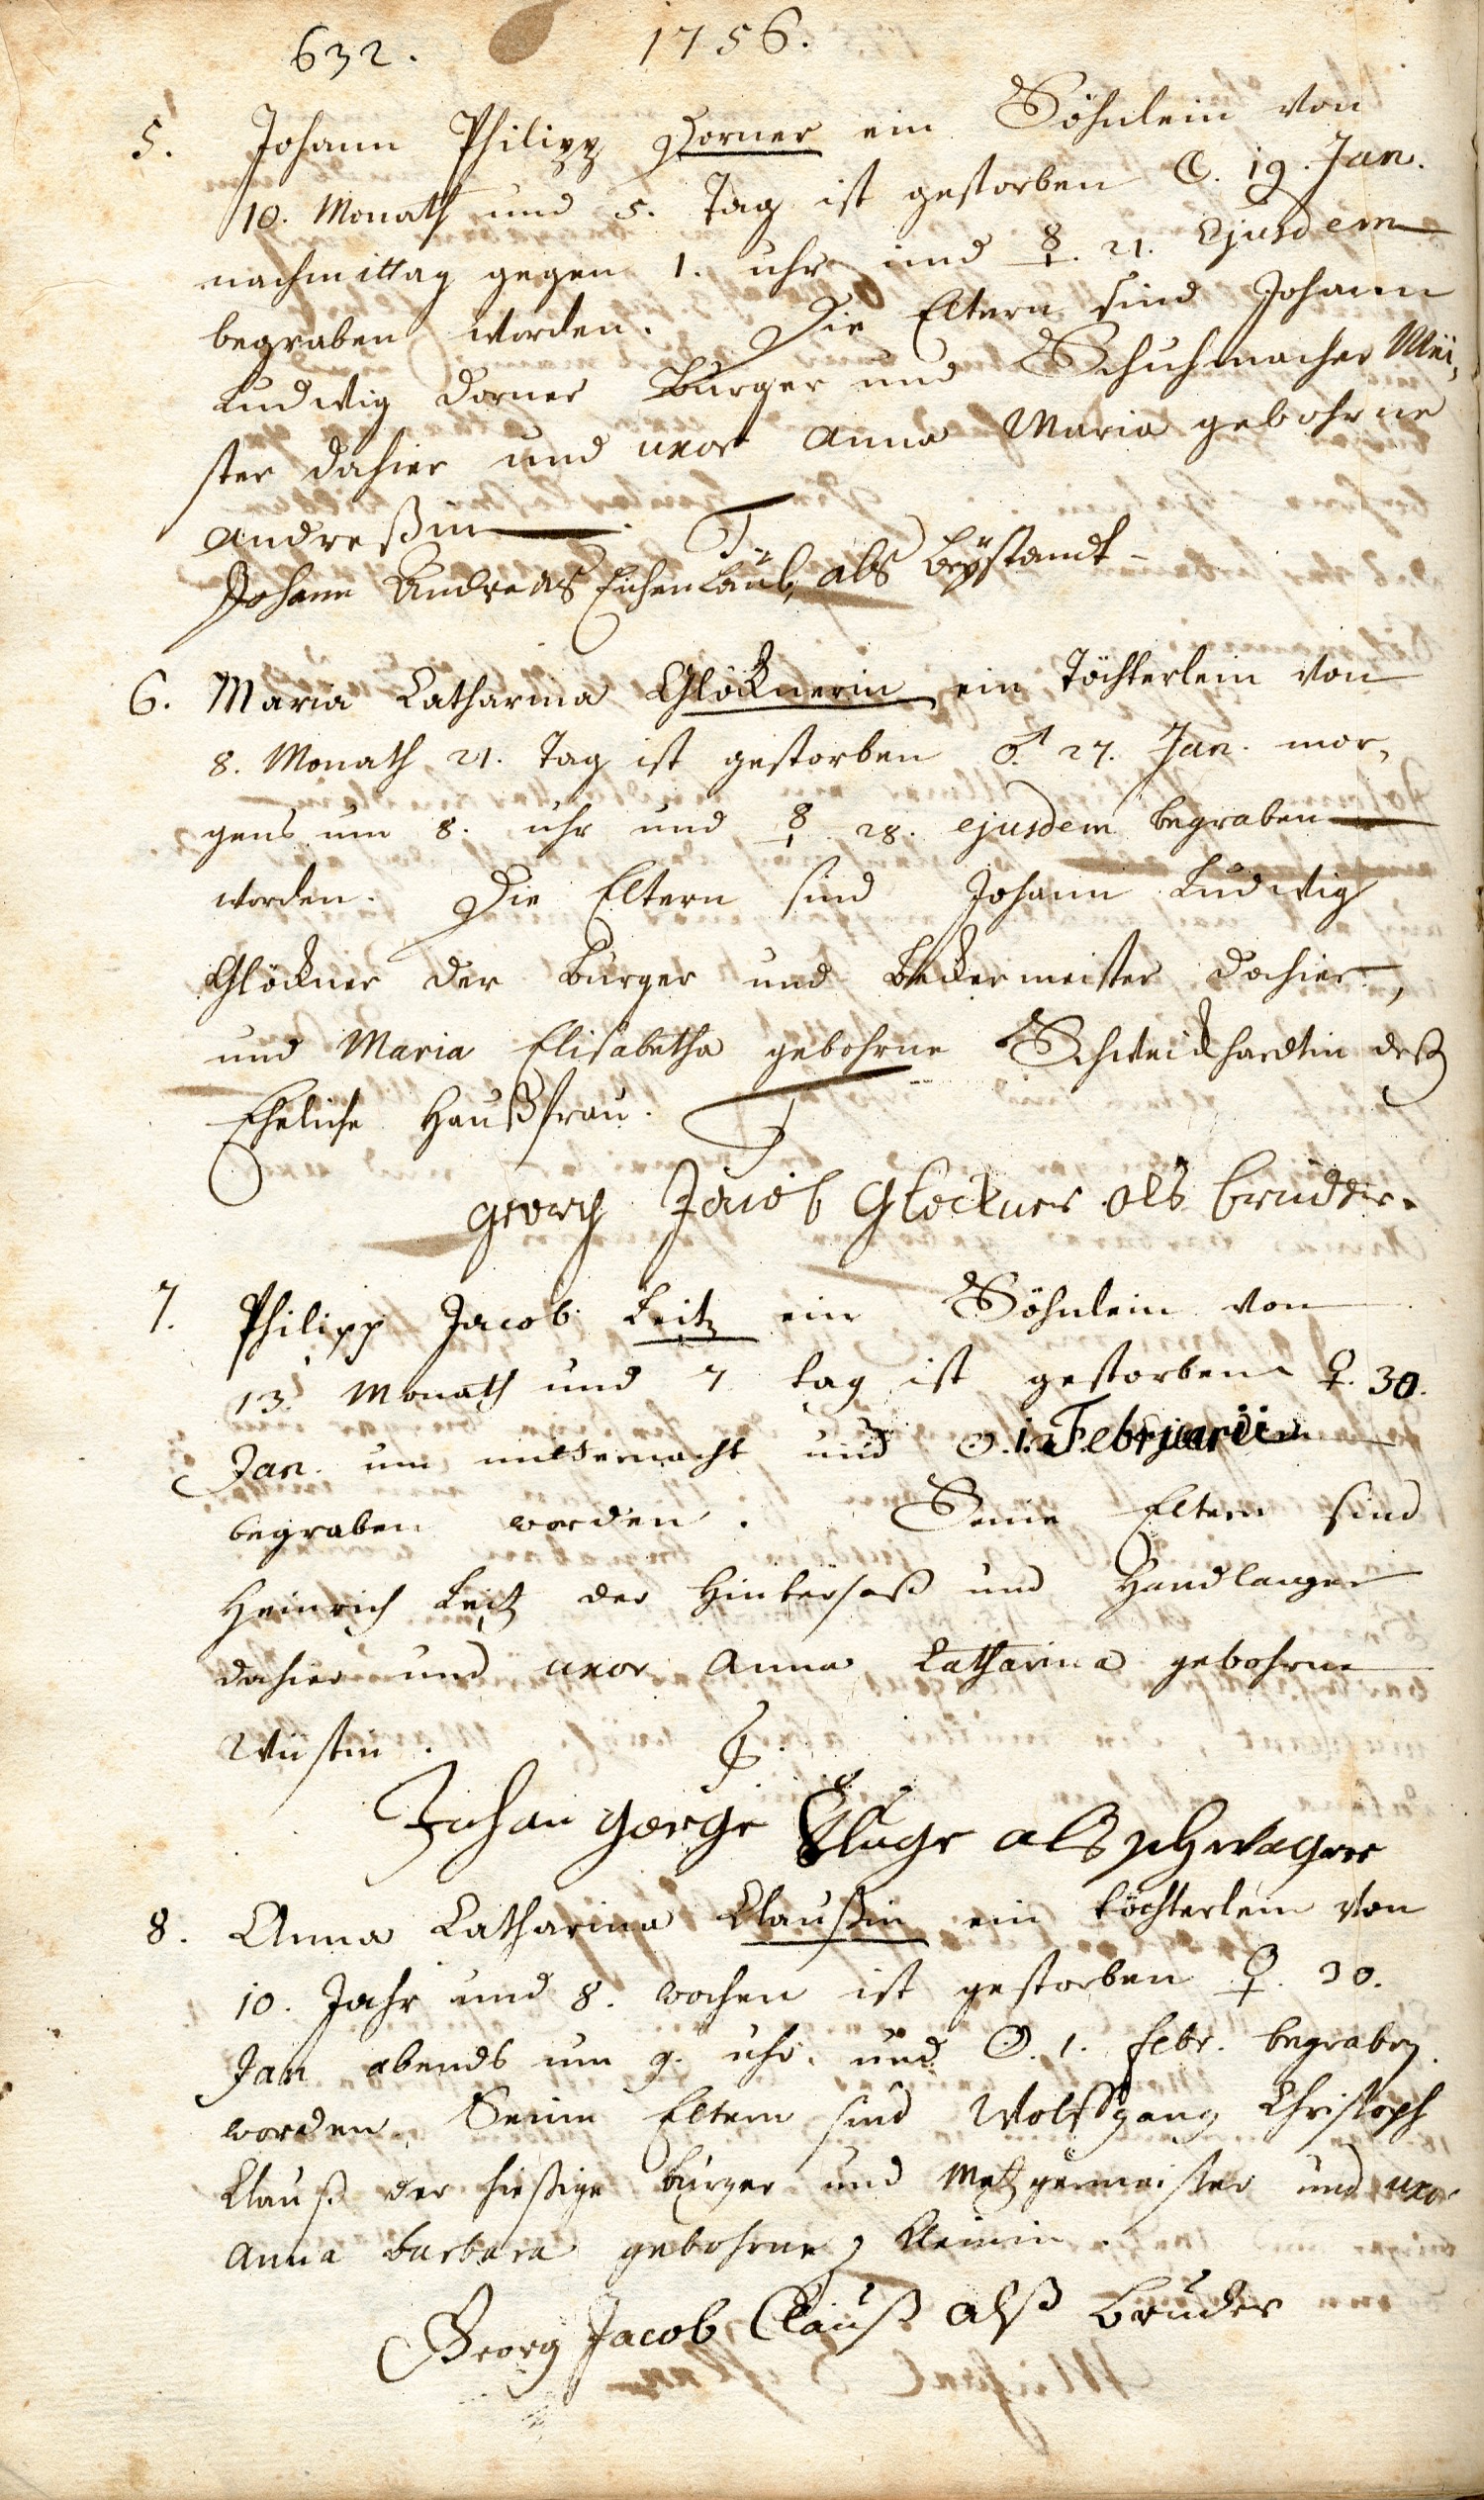 632. 1756.
5. Johann Philipp Dorner ein Söhnlein von
10. Monath und 5. Tag ist gestorben ☾. 19. Jan.
nachmittag gegen 1. uhr und ☿. 21. Ejusdem
begraben worden. Die Eltern sind Johann
Ludwig Dorner Burger und Schuhmacher Mei,
ster dahier und uxor Anna Maria gebohrne
Andreßin.
Johann Andreas Eichenlaub, als beÿstandt
6. Maria Catharina Glöcknerin ein Töchterlein von
8. Monath 21. Tag ist gestorben ♂. 27. Jan. mor,
gens um 8. uhr und ☿. 28. ejusdem begraben
worden. Die Eltern sind Johann Ludwig
Glöckner der burger und beckermeister dahier,
und Maria Elisabetha gebohrne Schweickhardtin deß
Eheliche Haußfrau.
georg Jacob Glöckner als bruder.
7. Philipp Jacob Leitz ein Söhnlein von
13. Monath und 7 tag ist gestorben ♀. 30.
Jan. um mitternacht und ☉. 1. Februarii
begraben worden. Seine Eltern sind
Heinrich Leitz der Hintersaß und Handlanger
dahier und uxor Anna Catharina gebohrne
Wüstin.
Johan george Kluge als schwager
8. Anna Catharina Claußin ein töchterlein von
10. Jahr und 8. wochen ist gestorben ♀. 30.
Jan abends um 9. uhr. und ☉. 1. febr. begraben
worden. Seine Eltern sind Wolfgang Christoph
Clauß der hießige burger und Metzgermeister und uxor
Anna barbara gebohrne Kleinin.
Georg Jacob Clauß alß bruder